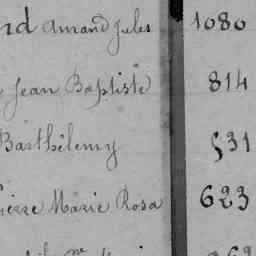 nd Amand Jules 1080
Jean Baptiste 814
Barthélemy 531
Pierre Marie Rosa 623